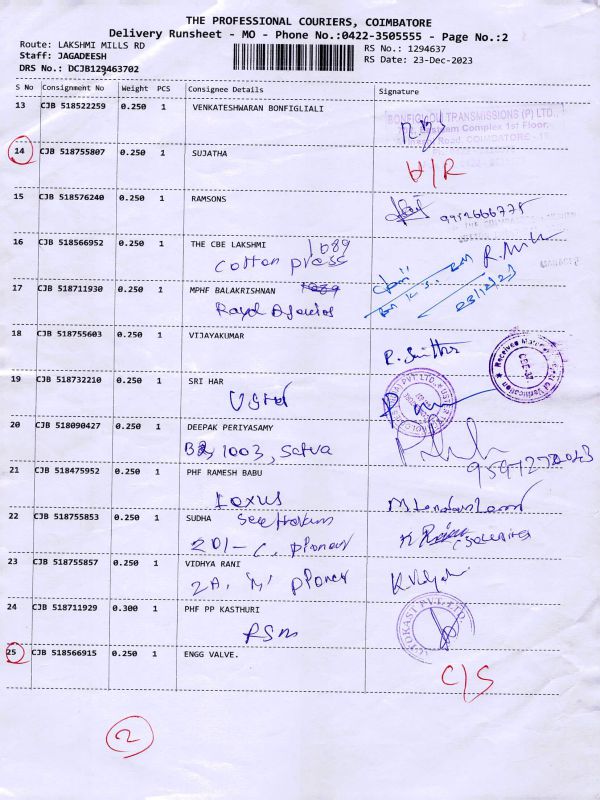 THE PROFESSIONAL COURIERS, COIMBATORE
Delivery Runsheet - MO - Phone No.:0422-3505555 - Page No.:2
Route: LAKSHMI MILLS RD
RS No.: 1294637
Staff: JAGADEESH
RS Date: 23-Dec-2023
DRS No.: DCJB129463702
S No Consignment No Weight PCS Consignee Details Signature
13 CJB 518522259 0.250 1 VENKATESHWARAN BONFIGLIALI
BONFIGLIOLI TRANSMISSIONS (P) LTD.,
Complex 1st Floor,
Road, COIMBATORE
14 CJB 518755807 0.250 1 SUJATHA
H/R
15 CJB 518576240 0.250 1 RAMSONS
9952666775
16 CJB 518566952 0.250 1 THE CBE LAKSHMI 1089
cotton press
17 CJB 518711930 0.250 1 MPHF BALAKRISHNAN
23/12/23
18 CJB 518755603 0.250 1 VIJAYAKUMAR
19 CJB 518732210 0.250 1 SRI HAR
20 CJB 518090427 0.250 1 DEEPAK PERIYASAMY
1003, Satva
21 CJB 518475952 0.250 1 PHF RAMESH BABU
Lexus
22 CJB 518755853 0.250 1 SUDHA
201-C,
23 CJB 518755857 0.250 1 VIDHYA RANI
2A, 'M'
24 CJB 518711929 0.300 1 PHF PP KASTHURI
RSM
25 CJB 518566915 0.250 1 ENGG VALVE.
C/S
2